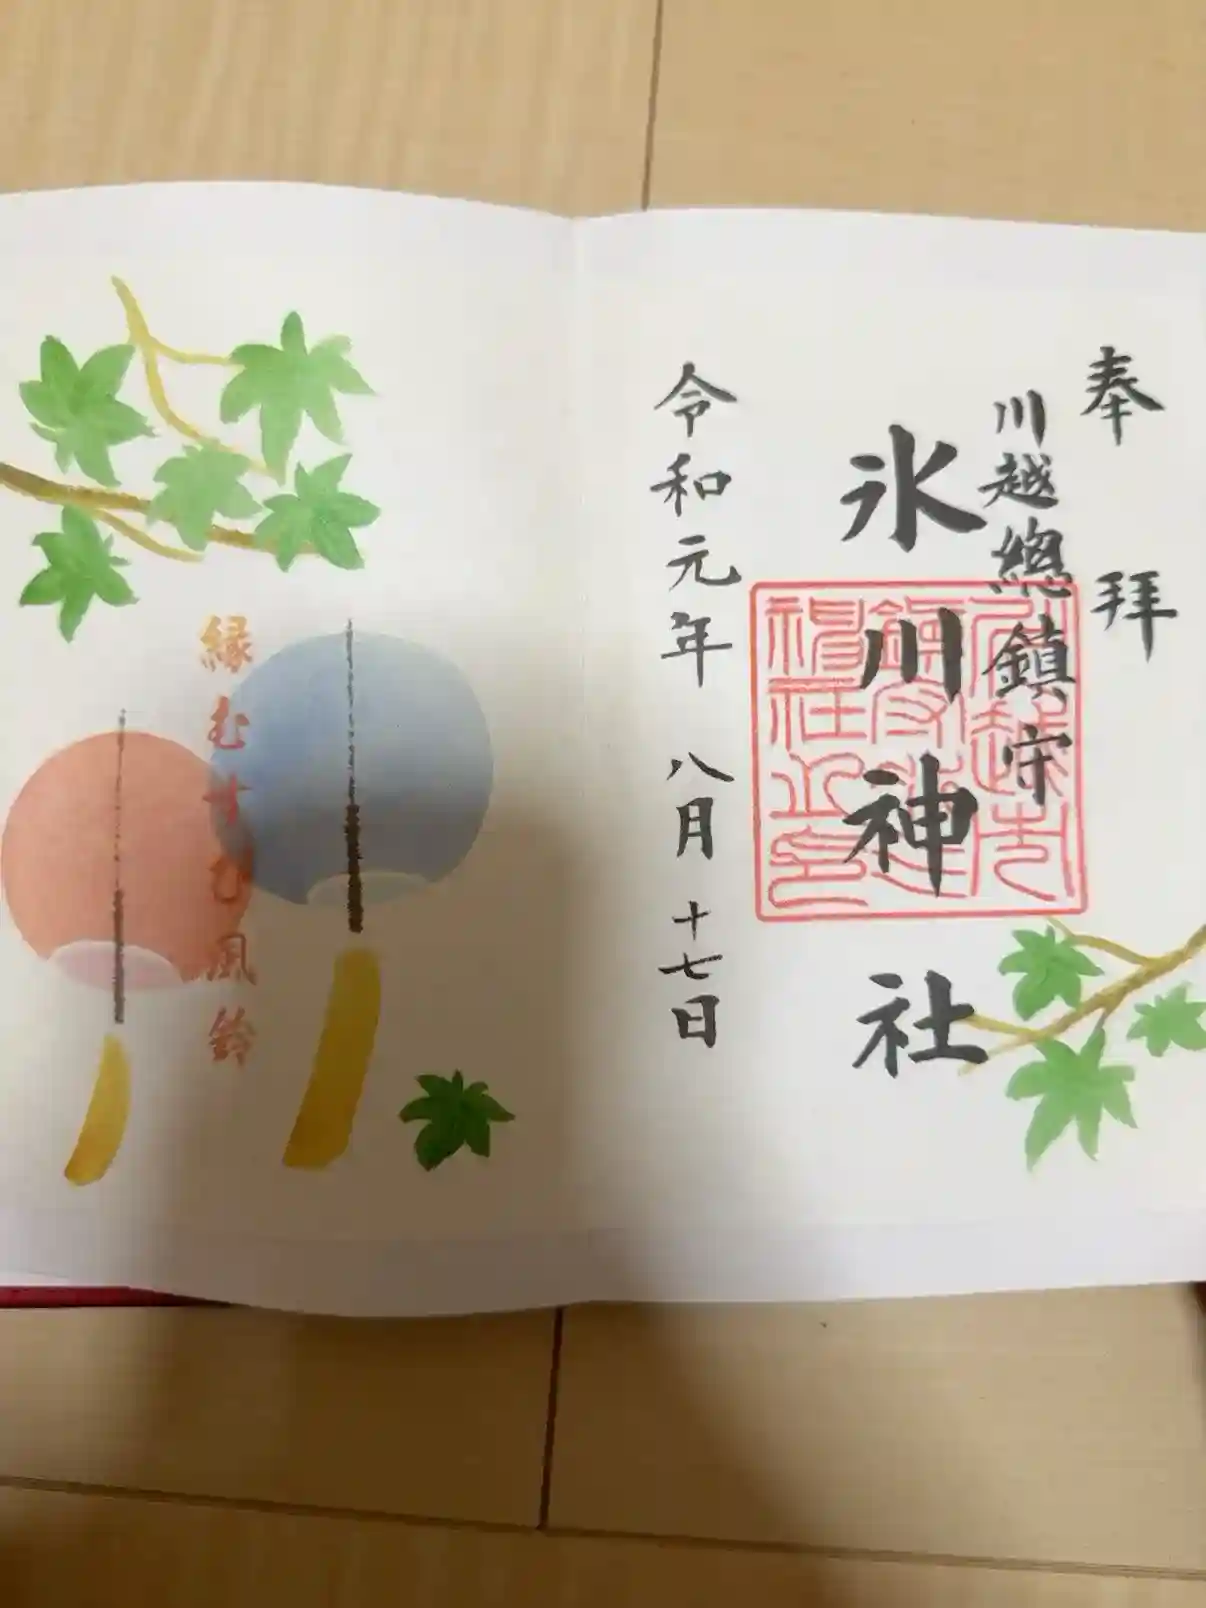 奉拝
川越總鎮守
氷川神社
令和元年 八月十七日
縁むすび風鈴